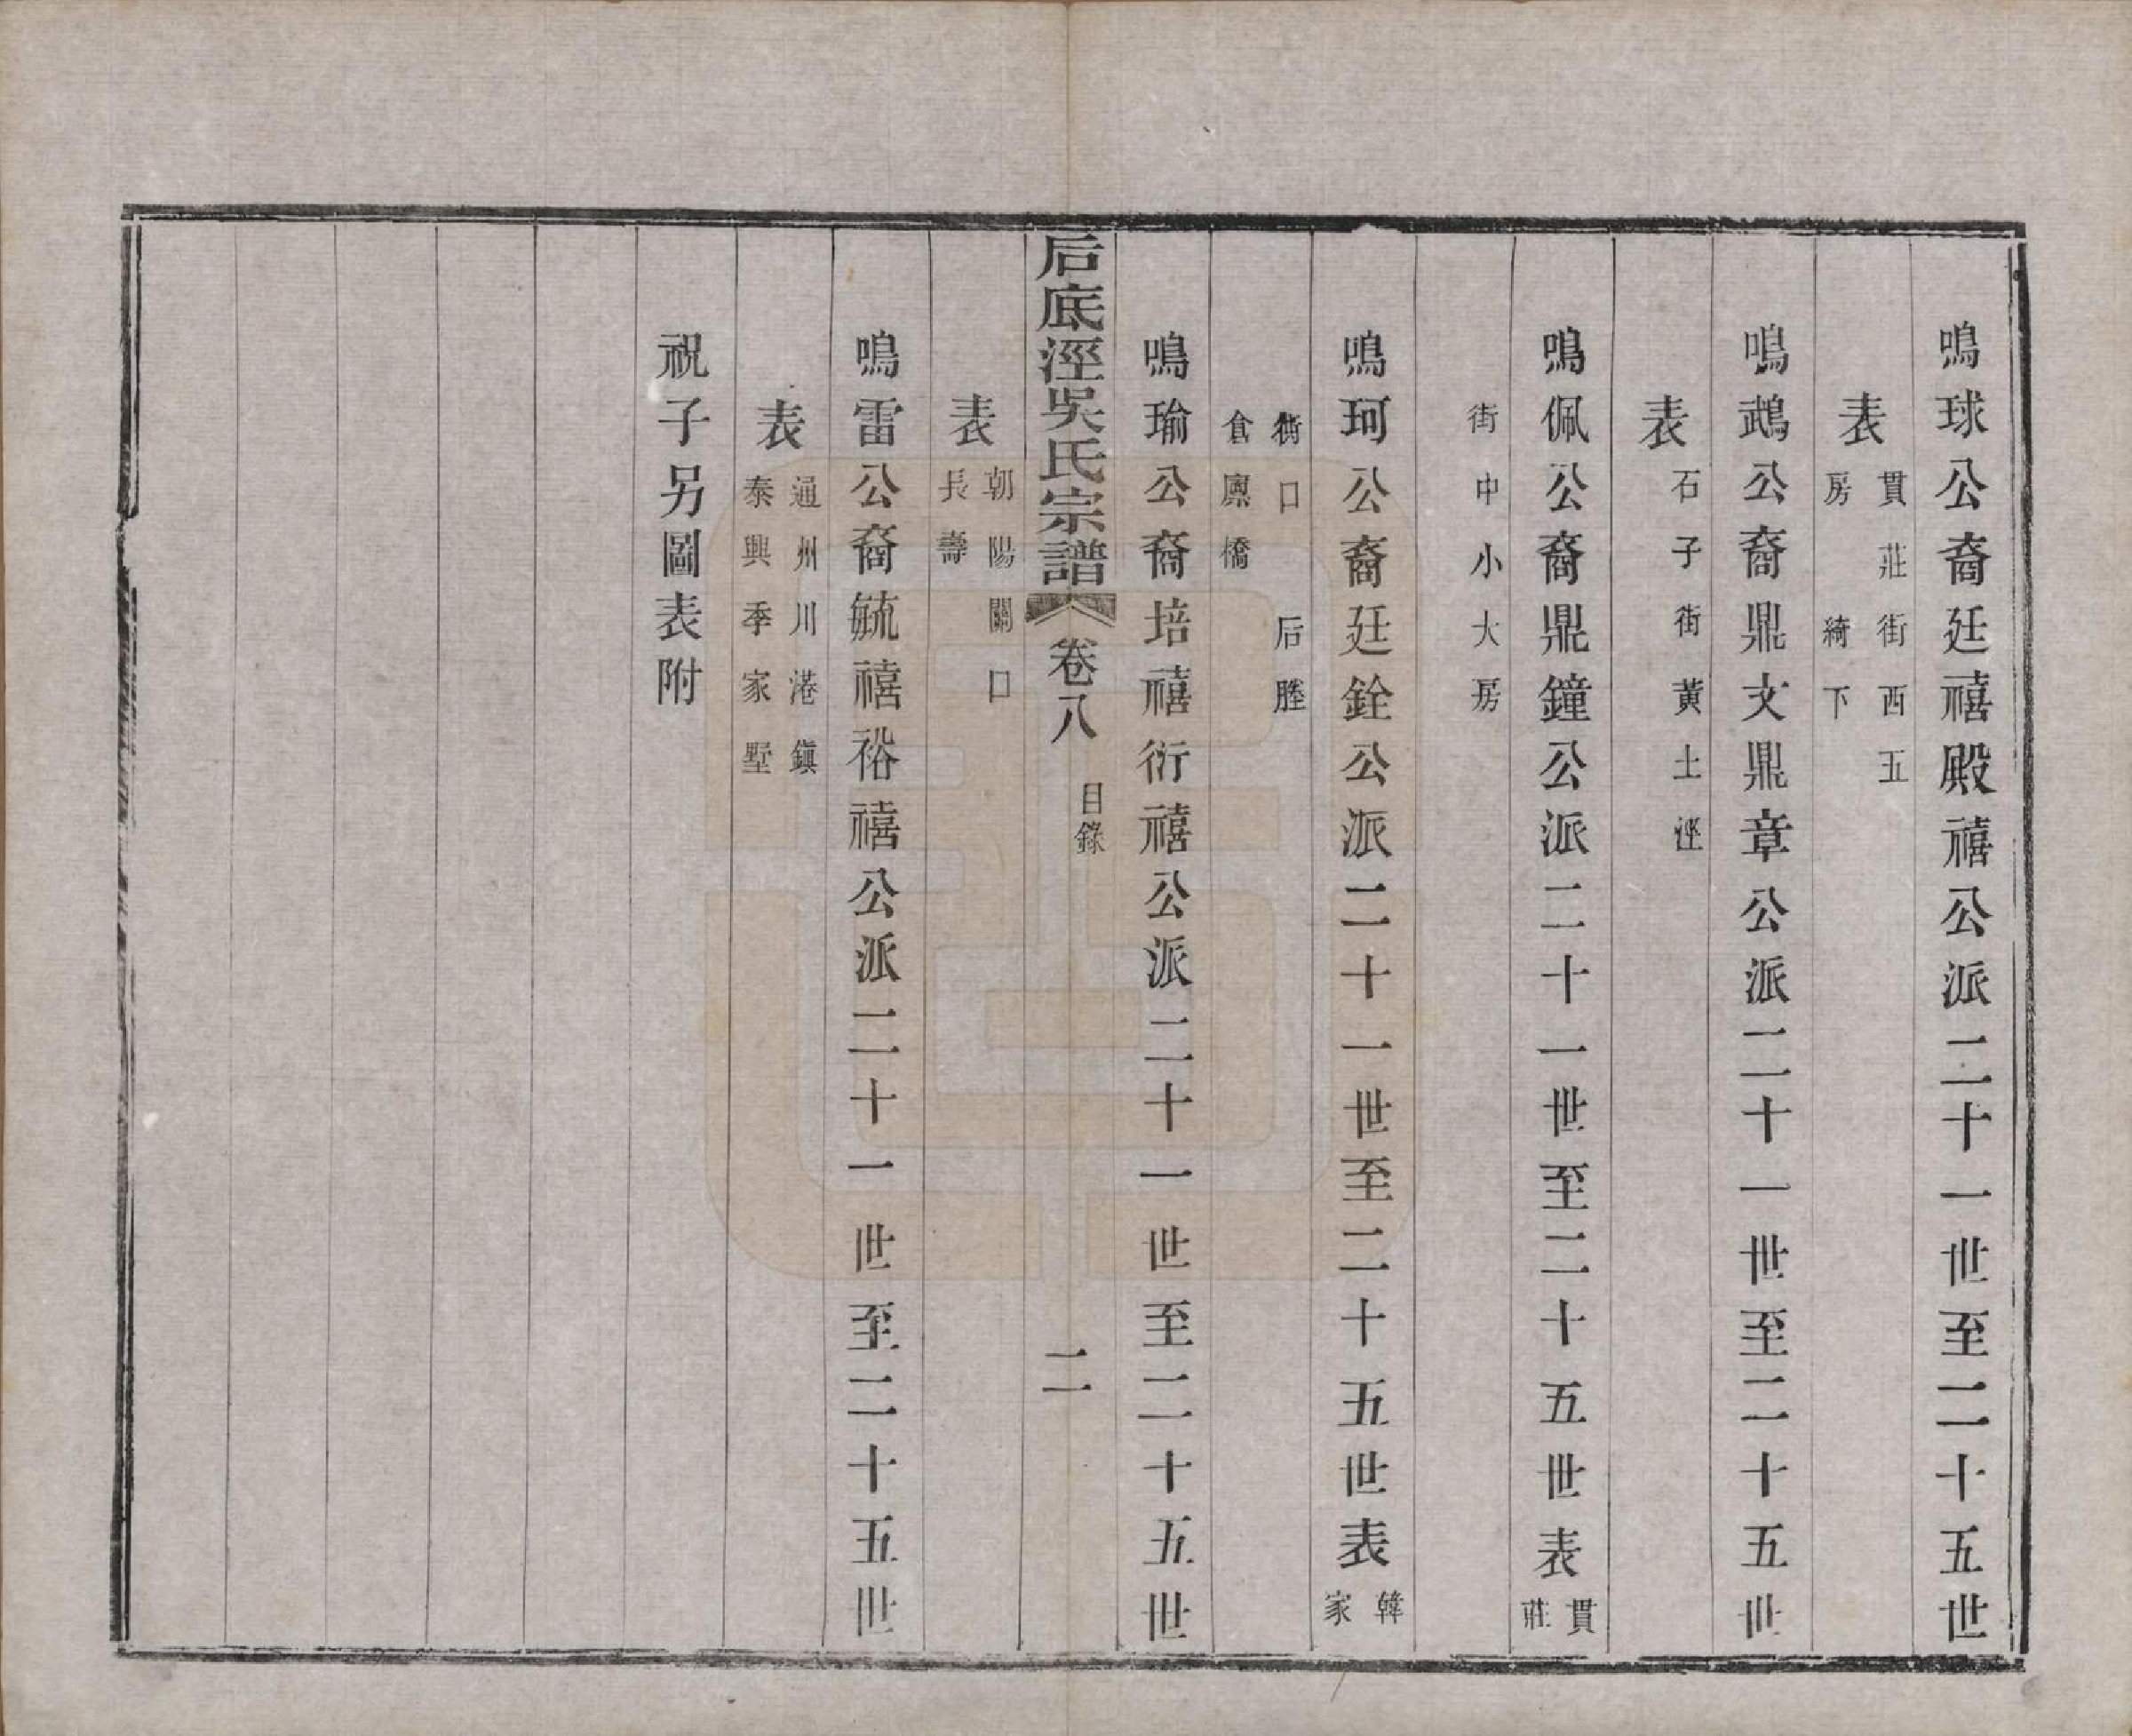 鳴球公裔廷禧殿禧公派二十一世至二十五世
表 貫莊街西五
房 綺下
鳴鵡公裔鼎文鼎章公派二十一世至二十五世
表 石子街黄土涇
鳴佩公裔鼎鐘公派二十一世至二十五世表 貫莊
街中小大房
鳴珂公裔廷銓公派二十一世至二十五世表 韓家
衖口 后塍
倉廪橋
鳴瑜公裔培禧衍禧公派二十一世至二十五世
表 朝陽關口
長壽
后底涇吳氏宗譜 卷八 目錄 二
鳴雷公裔毓禧裕禧公派二十一世至二十五世
表 通州川港鎭
泰興季家墅
祝子另圖表附